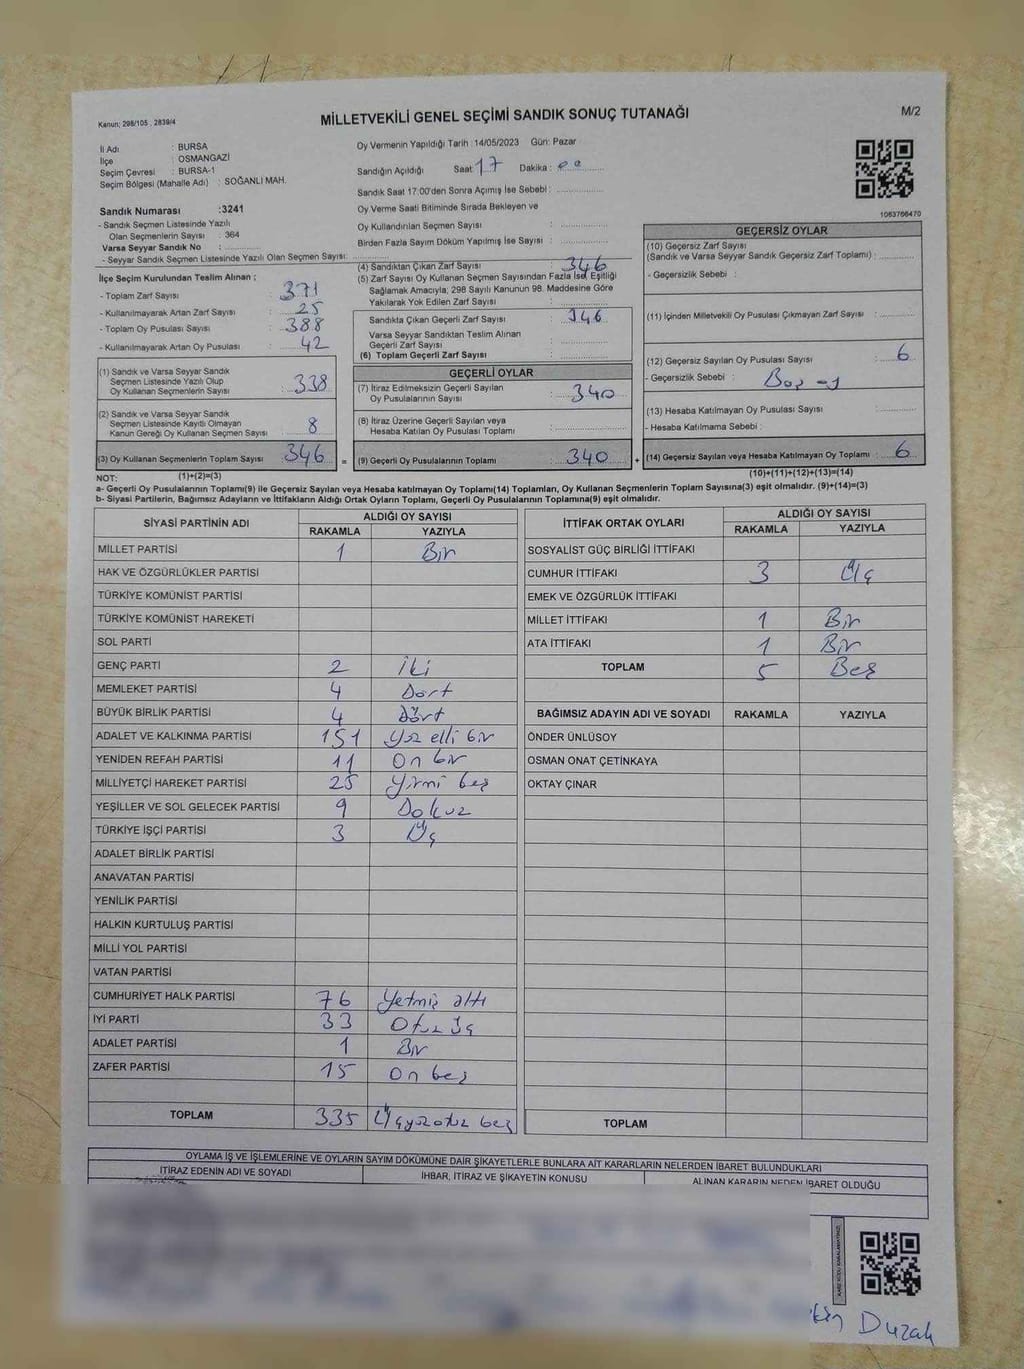 Kanun: 298/105 , 2839/4
MİLLETVEKİLİ GENEL SEÇİMİ SANDIK SONUÇ TUTANAĞI
M/2
İl Adı : BURSA
İlçe : OSMANGAZİ
Seçim Çevresi : BURSA-1
Seçim Bölgesi (Mahalle Adı) : SOĞANLI MAH.
Sandık Numarası :3241
- Sandık Seçmen Listesinde Yazılı
Olan Seçmenlerin Sayısı : 364
Varsa Seyyar Sandık No :
- Seyyar Sandık Seçmen Listesinde Yazılı Olan Seçmen Sayısı:
Oy Vermenin Yapıldığı Tarih :14/05/2023 Gün: Pazar
Sandığın Açıldığı Saat 17 Dakika : 00
Sandık Saat 17:00'den Sonra Açımış İse Sebebi :
Oy Verme Saati Bitiminde Sırada Bekleyen ve
Oy Kullandırılan Seçmen Sayısı :
Birden Fazla Sayım Döküm Yapılmış İse Sayısı :
1063766470
İlçe Seçim Kurulundan Teslim Alınan :
- Toplam Zarf Sayısı : 371
- Kullanılmayarak Artan Zarf Sayısı : 25
- Toplam Oy Pusulası Sayısı : 388
- Kullanılmayarak Artan Oy Pusulası : 42
(1) Sandık ve Varsa Seyyar Sandık
Seçmen Listesinde Yazılı Olup
Oy Kullanan Seçmenlerin Sayısı : 338
(2) Sandık ve Varsa Seyyar Sandık
Seçmen Listesinde Kayıtlı Olmayan
Kanun Gereği Oy Kullanan Seçmen Sayısı : 8
(3) Oy Kullanan Seçmenlerin Toplam Sayısı : 346 =
(1)+(2)=(3)
(4) Sandıktan Çıkan Zarf Sayısı : 346
(5) Zarf Sayısı Oy Kullanan Seçmen Sayısından Fazla İse, Eşitliği
Sağlamak Amacıyla; 298 Sayılı Kanunun 98. Maddesine Göre
Yakılarak Yok Edilen Zarf Sayısı :
Sandıkta Çıkan Geçerli Zarf Sayısı : 346
Varsa Seyyar Sandıktan Teslim Alınan
Geçerli Zarf Sayısı :
(6) Toplam Geçerli Zarf Sayısı :
GEÇERLİ OYLAR
(7) İtiraz Edilmeksizin Geçerli Sayılan
Oy Pusulalarının Sayısı : 340
(8) İtiraz Üzerine Geçerli Sayılan veya
Hesaba Katılan Oy Pusulası Toplamı :
(9) Geçerli Oy Pusulalarının Toplamı : 340 +
GEÇERSİZ OYLAR
(10) Geçersiz Zarf Sayısı
(Sandık ve Varsa Seyyar Sandık Geçersiz Zarf Toplamı) :
- Geçersizlik Sebebi :
(11) İçinden Milletvekili Oy Pusulası Çıkmayan Zarf Sayısı :
(12) Geçersiz Sayılan Oy Pusulası Sayısı : 6
- Geçersizlik Sebebi : Boş oy
(13) Hesaba Katılmayan Oy Pusulası Sayısı :
- Hesaba Katılmama Sebebi :
(14) Geçersiz Sayılan veya Hesaba Katılmayan Oy Toplamı : 6
(10)+(11)+(12)+(13)=(14)
NOT:
a- Geçerli Oy Pusulalarının Toplamı(9) ile Geçersiz Sayılan veya Hesaba katılmayan Oy Toplamı(14) Toplamları, Oy Kullanan Seçmenlerin Toplam Sayısına(3) eşit olmalıdır. (9)+(14)=(3)
b- Siyasi Partilerin, Bağımsız Adayların ve İttifakların Aldığı Ortak Oyların Toplamı, Geçerli Oy Pusulalarının Toplamına(9) eşit olmalıdır.
SİYASİ PARTİNİN ADI ALDIĞI OY SAYISI
RAKAMLA YAZIYLA
MİLLET PARTİSİ 1 Bir
HAK VE ÖZGÜRLÜKLER PARTİSİ
TÜRKİYE KOMÜNİST PARTİSİ
TÜRKİYE KOMÜNİST HAREKETİ
SOL PARTİ
GENÇ PARTİ 2 İki
MEMLEKET PARTİSİ 4 Dört
BÜYÜK BİRLİK PARTİSİ 4 Dört
ADALET VE KALKINMA PARTİSİ 151 Yüz elli bir
YENİDEN REFAH PARTİSİ 11 On bir
MİLLİYETÇİ HAREKET PARTİSİ 25 Yirmi beş
YEŞİLLER VE SOL GELECEK PARTİSİ 9 Dokuz
TÜRKİYE İŞÇİ PARTİSİ 3 Üç
ADALET BİRLİK PARTİSİ
ANAVATAN PARTİSİ
YENİLİK PARTİSİ
HALKIN KURTULUŞ PARTİSİ
MİLLİ YOL PARTİSİ
VATAN PARTİSİ
CUMHURİYET HALK PARTİSİ 76 Yetmiş altı
İYİ PARTİ 33 Otuz üç
ADALET PARTİSİ 1 Bir
ZAFER PARTİSİ 15 On beş
TOPLAM 335 Üçyüzotuz beş
İTTİFAK ORTAK OYLARI ALDIĞI OY SAYISI
RAKAMLA YAZIYLA
SOSYALİST GÜÇ BİRLİĞİ İTTİFAKI
CUMHUR İTTİFAKI 3 Üç
EMEK VE ÖZGÜRLÜK İTTİFAKI
MİLLET İTTİFAKI 1 Bir
ATA İTTİFAKI 1 Bir
TOPLAM 5 Beş
BAĞIMSIZ ADAYIN ADI VE SOYADI RAKAMLA YAZIYLA
ÖNDER ÜNLÜSOY
OSMAN ONAT ÇETİNKAYA
OKTAY ÇINAR
TOPLAM
OYLAMA İŞ VE İŞLEMLERİNE VE OYLARIN SAYIM DÖKÜMÜNE DAİR ŞİKAYETLERLE BUNLARA AİT KARARLARIN NELERDEN İBARET BULUNDUKLARI
İTİRAZ EDENİN ADI VE SOYADI İHBAR, İTİRAZ VE ŞİKAYETİN KONUSU ALINAN KARARIN NEDEN İBARET OLDUĞU
Duzak